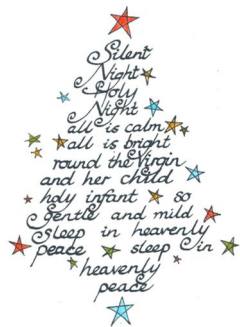 Silent
Night
Holy
Night
all is calm
all is bright
round the Virgin
and her child
holy infant so
gentle and mild
Sleep in heavenly
peace sleep in
heavenly
peace